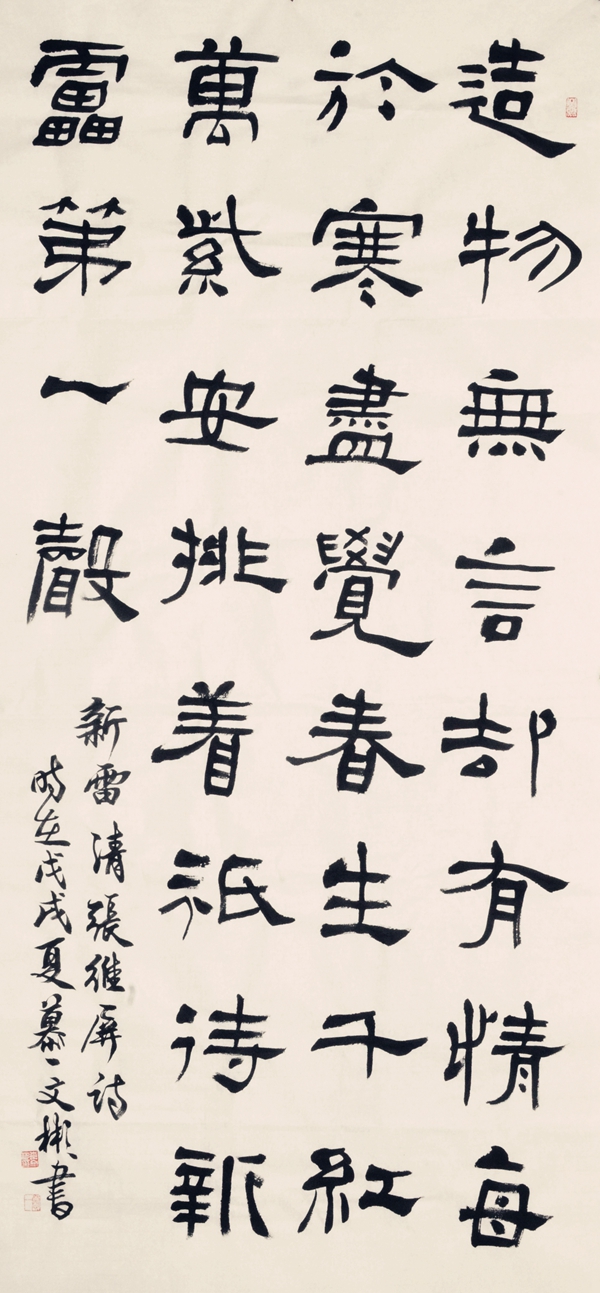 造物無言却有情每
於寒盡覺春生千紅
萬紫安排着祇待新
靁第一聲
新雷清張維屏詩
時在戊戌夏慕文彬書